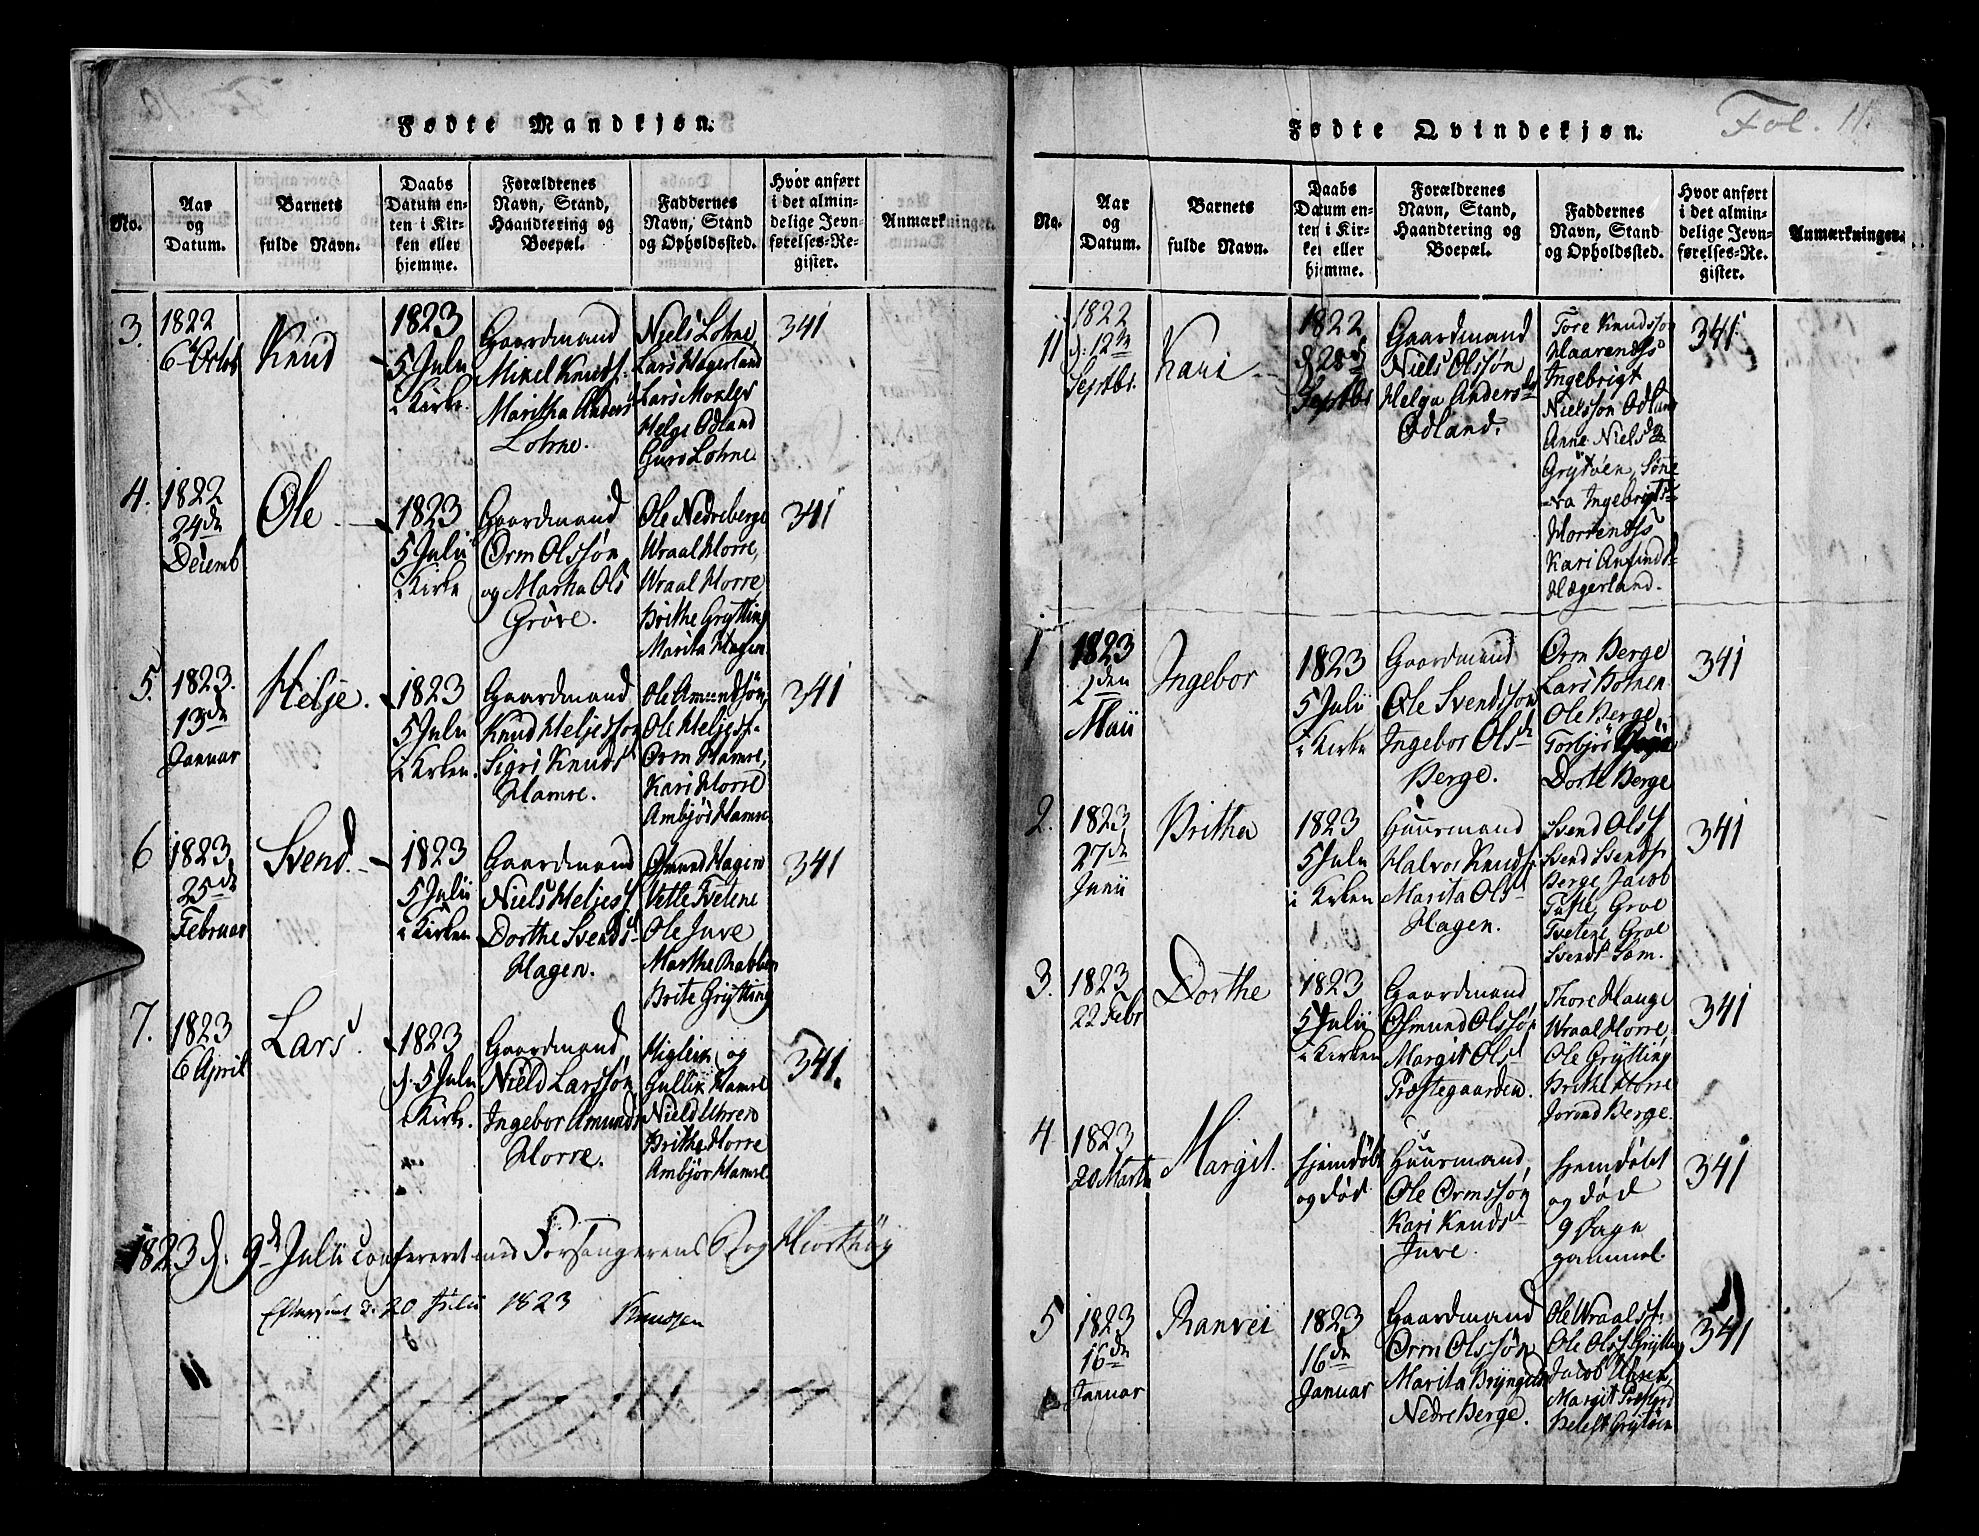 Fødte Mandkjøn.
No.
Aar
og
Datum.
Barnets
fulde Navn.
Daabs
Datum en-
ten i Kir-
ken eller
hjemme.
Forældrenes
Navn, Stand,
Haandtering og
Boepæl.
Faddernes
Navn, Stand
og Opholdssted.
Hvor anført
i det almin-
delige Jevn-
førelses-Re-
gister.
Anmærkninger.
3.
1822
6te Octob
Knud
1823
5 Julii
i Kirke.
Gaardmand
Mikel Knuds.
Maritha Anders
Lohne.
Niels Lohne,
Lars Hægerland
Lars Moxlev
Helge Odland
Guro Lohne
341
4.
1822
24de
Decemb
Ole
1823
5 Julii
i Kirke
Gaardmand
Orm Olssøn
og Martha Ols
Grove.
Ole Nedreberge
Wraal Horre,
Wraal Horre
Brithe Grytting
Marita Hagen
341
5.
1823.
13de
Januar
Helje.
1823
5 Julii
i Kirken.
Gaardmand
Knud Heljessøn
Sigri Knuds
Hamre.
Ole Amundsøn,
Ole Heljess.
Orm Hamre,
Kari Horre
Ambjør Hamre
341
6
1823
25de
Februar
Svend.
1823
5 Julii
i Kirken
Gaardmand
Niels Heljess
Dorthe Svends
Hagen.
Osmund Hagen
Vetle Tvetene
Ole Juve
Marthe Rabben
Brite Grytting
341
7.
1823
6 April
Lars.
1823
d. 5 Julii
i Kirke.
Gaardmand
Nield Larssøn
Ingebor Amunds
Horre.
Higleik og
Gullik Hamre
Nield Uhren
Brithe Horre
Ambjør Hamre
341.
1823 d: 9de Julii confereret med Forsangerens Bog Hiorthøy
Efterseet d. 20 Julii 1823 Knudsen
Fødte Qvindekjøn.
Fol. 11.
No.
Aar
og
Datum.
Barnets
fulde Navn.
Daabs
Datum en-
ten i Kir-
ken eller
hjemme.
Forældrenes
Navn, Stand,
Haandtering og
Boepæl.
Faddernes
Navn, Stand
og Opholdssted.
Hvor anført
i det almin-
delige Jevn-
førelses-Re-
gister.
Anmærkninger.
11
1822
d: 12te
Septbr.
Kari
1822
d 28de
Septbr
Gaardmand
Niels Olssøn
Helga Anders
Odland.
Tore Knudssøn
Ingebrigt
Nielssøn Odland
Anne Niels
Grytøen,
Ingebrigts
Kari Amunds
Hægerland.
341
1
1823
2den
Maii
Ingebor
1823
5 Julii
i Kirke
Gaardmand
Ole Svendssøn
Ingebor Ols
Berge.
Orm Berge
Lars Botnen
Ole Berge
Torbjør
Dorte Berge
341
2.
1823
27de
Junii
Britha
1823
5 Julii
i Kirken
Huusmand
Halvor Knuds.
Marita Ols
Hagen.
Svend Olss
Svend Svends.
Berge Jacob
Groe
Tvetene Groe
Svends
341
3.
1823
22 Febr
Dorthe
1823
5 Julii
i Kirken
Gaardmand
Osmund Olssøn
Margit Ols
Præstegaarden.
Thore Hauge
Wraal Horre
Ole Grytting
Brithe Horre
Jorand Berge.
341
4
1823
20 Marts
Margit.
hjemdøbt
og død
Huusmand,
Ole Ormssøn
Kari Knuds
Juve.
hjemdøbt
og død
9 Dage
gammel.
341
5
1823
16de
Januar
Ranvei
1823
16de
Januar
Gaardmand
Orm Olssøn
Marita Bryngelds
Nedre Berge.
Ole Wraalss.
Ole Olss Grytting
Jacob Uhren,
Margit Præstgrd
Grytøen
341